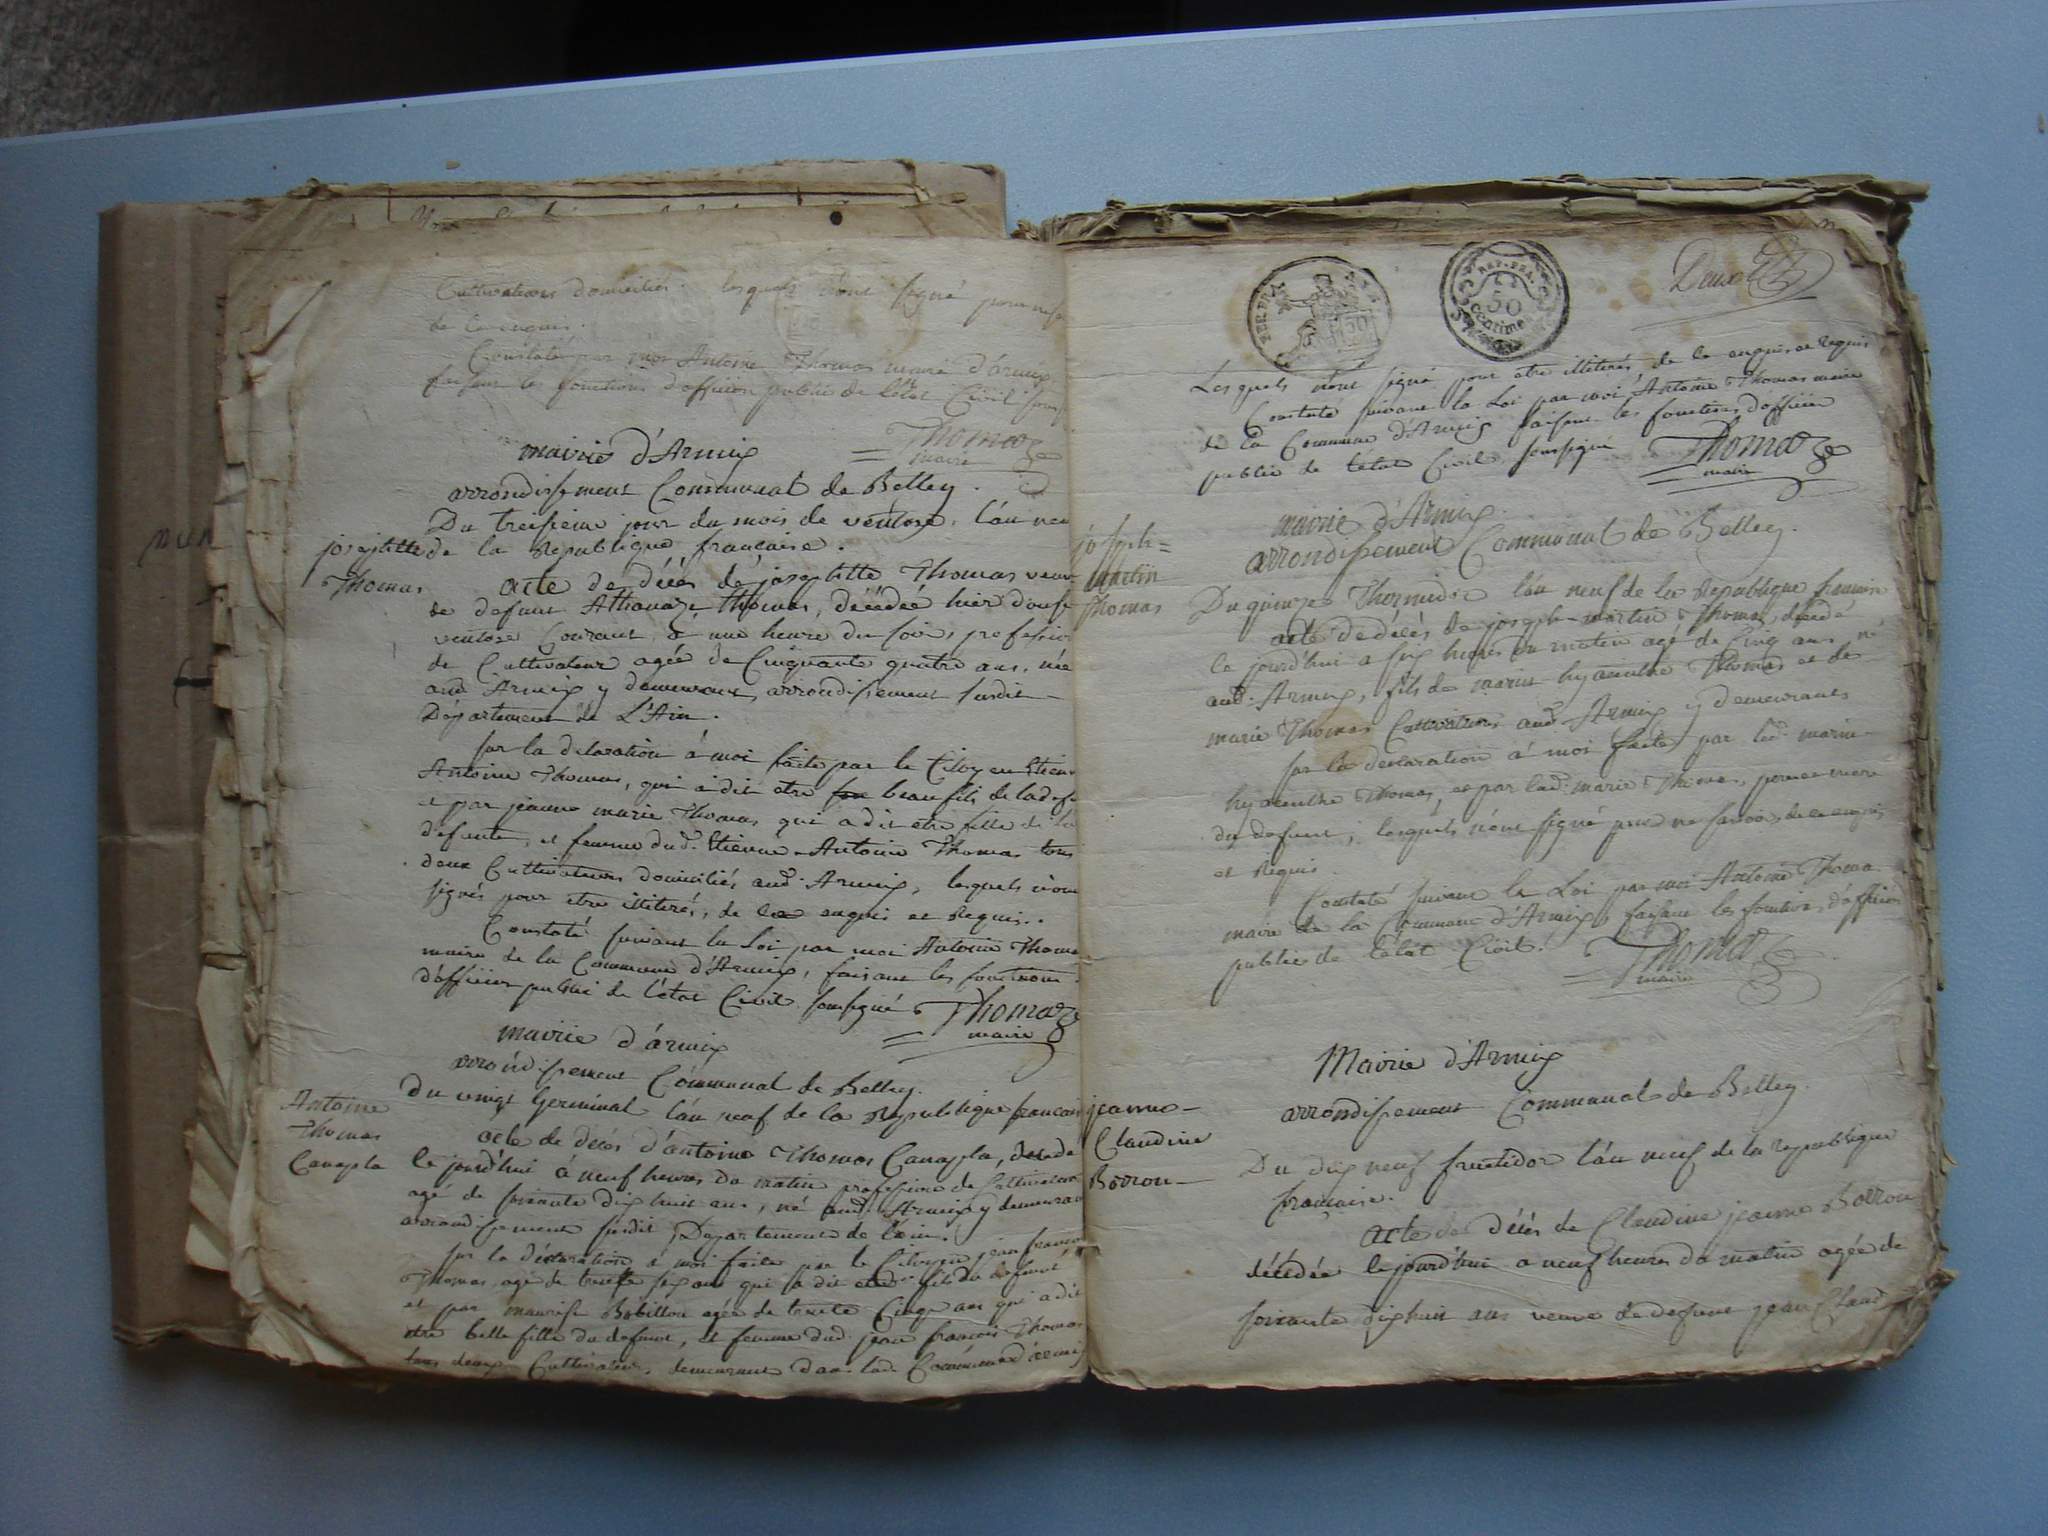 Cultivateurs domiciliés lesquels n'ont signé pour ne s
de ce enquis.
Constaté par moi Antoine Thomas maire d'armix
faisant les fonctions d'officier public de l'état Civil sous
Thomas
maire
mairie d'Armix
arrondissement Communal de Belley.
Du treisieme jour du mois de ventose, l'an neu
josephtte
Thomas
de la Republique française.
acte de décès de josephtte Thomas veuve
de defunt Athanaze thomas, décédée hier douse
ventose Courant à une heure du soir, profession
de Cultivateur agée de Cinquante quatre ans, née
aud. Armix y demeurant, arrondissement susdit
Département de L'Ain.
sur la declaration à moi faite par le Citoyen Etien
Antoine Thomas, qui a dit etre beau fils de lad. def
et par jeanne marie Thomas qui a dit etre fille de la
defunte, et femme dud. Etienne-Antoine Thomas tous
deux Cultivateurs domiciliés aud. Armix, lesquels n'ont
signés pour etre illiterés, de ce enquis et Requis.
Constaté suivant la Loi par moi Antoine Thoma
maire de la Commune d'Armix, faisant les fonctions
d'officier public de l'état Civil soussigné
Thomas
maire
mairie d'armix
arrondissement Communal de Belley.
Antoine
Thomas
Canapla
du vingt Germinal l'an neuf de la Republique francais
acte de décès d'antoine Thomas Canapla, décédé
le jourd'hui à neuf heures du matin profession de Cultivateur
agé de soixante dix huit ans, né aud. Armix y demeuran
arrondissement susdit Département de l'ain.
sur la déclaration à moi faite par le Citoyen jean françoi
Thomas agé de trente six ans qui a dit etre fils du defunt
et par Bobillon agée de trente Cinq ans qui a dit
etre belle fille du defunt, et femme dud. jean françois Thomas
tous deux Cultivateurs, demeurant dans lad. Commune d'armix
REP. FRA.
50
REP. FRA.
50
Centime
Deux
Lesquels n'ont signé pour etre illiterés, de ce enquis et Requis
Constaté suivant la Loi par moi Antoine Thomas maire
de la Commune d'Armix faisant les fonctions d'officier
public de l'état Civil, soussigné
Thomas
maire
mairie d'Armix.
arrondissement Communal de Belley.
joseph=
martin
Thomas
Du quinze Thermidor l'an neuf de la Republique francaise
acte de décès de joseph-martin Thomas, décédé
le jourd'hui a six heures du matin agé de Cinq ans né
aud. Armix, fils de marin hyacinthe Thomas et de
marie Thomas Cultivateurs aud. Armix y demeurants
sur la declaration à moi faite par led. marin
hyacinthe Thomas, et par lad. marie Thomas, pere et mere
du defunt, lesquels n'ont signé pour ne savoir, de ce enquis
et Requis
Constaté suivant la Loi par moi Antoine Thoma
maire de la Commune d'Armix, faisant les fonctions d'officier
public de l'état Civil.
Thomas
maire
Mairie d'Armix
arrondissement Communal de Belley.
jeanne-
Claudine
Borron-
Du dix neuf fructidor l'an neuf de la republique
française.
acte de décès de Claudine jeanne Borron
décédée le jourd'hui a neuf heures du matin agée de
soixante dix huit ans veuve de defunt jean Claud